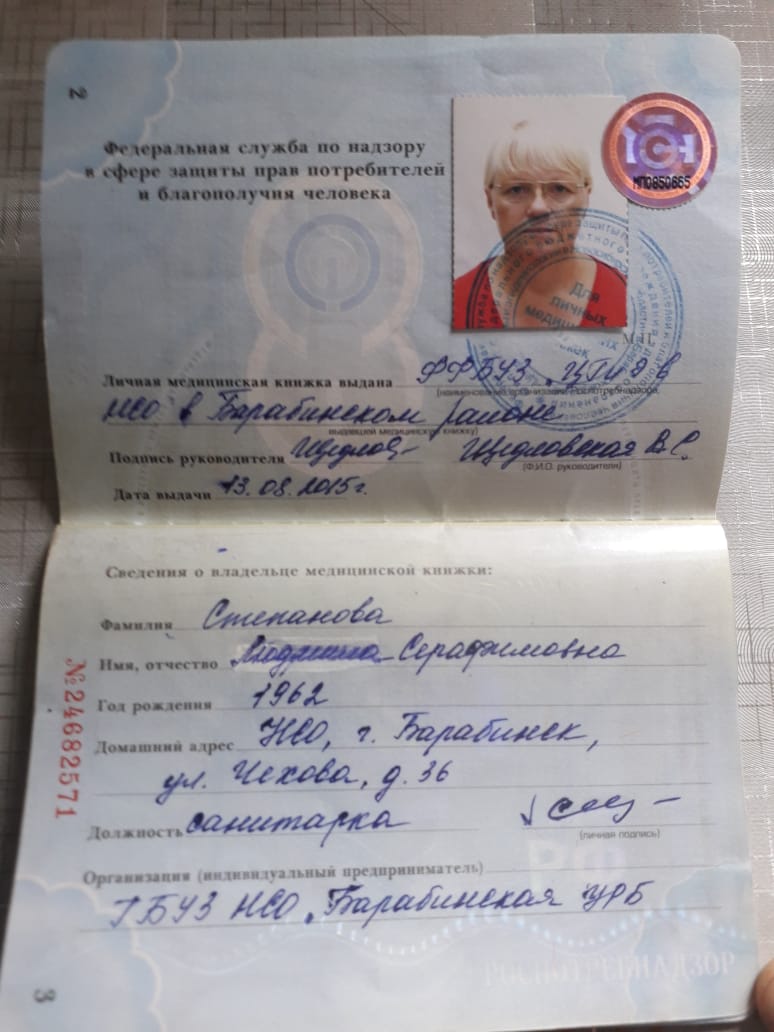 2
Федеральная служба по надзору
в сфере защиты прав потребителей
и благополучия человека
МП0850665
Для
личных
М.П.
Личная медицинская книжка выдана ФФБУЗ "ЦГиЭ в
(наименование организации Роспотребнадзора,
НСО в Барабинском районе
выдавшей медицинскую книжку)
Подпись руководителя Щедловская В.С.
(Ф.И.О. руководителя)
Дата выдачи 13.08.2015г.
Сведения о владельце медицинской книжки:
Фамилия Степанова
Имя, отчество Людмила Серафимовна
Год рождения 1962
Домашний адрес НСО, г. Барабинск,
ул. Чехова, д. 36
Должность санитарка
(личная подпись)
Организация (индивидуальный предприниматель)
ГБУЗ НСО "Барабинская ЦРБ
№24682571
РФ
РОСПОТРЕБНАДЗОР
3